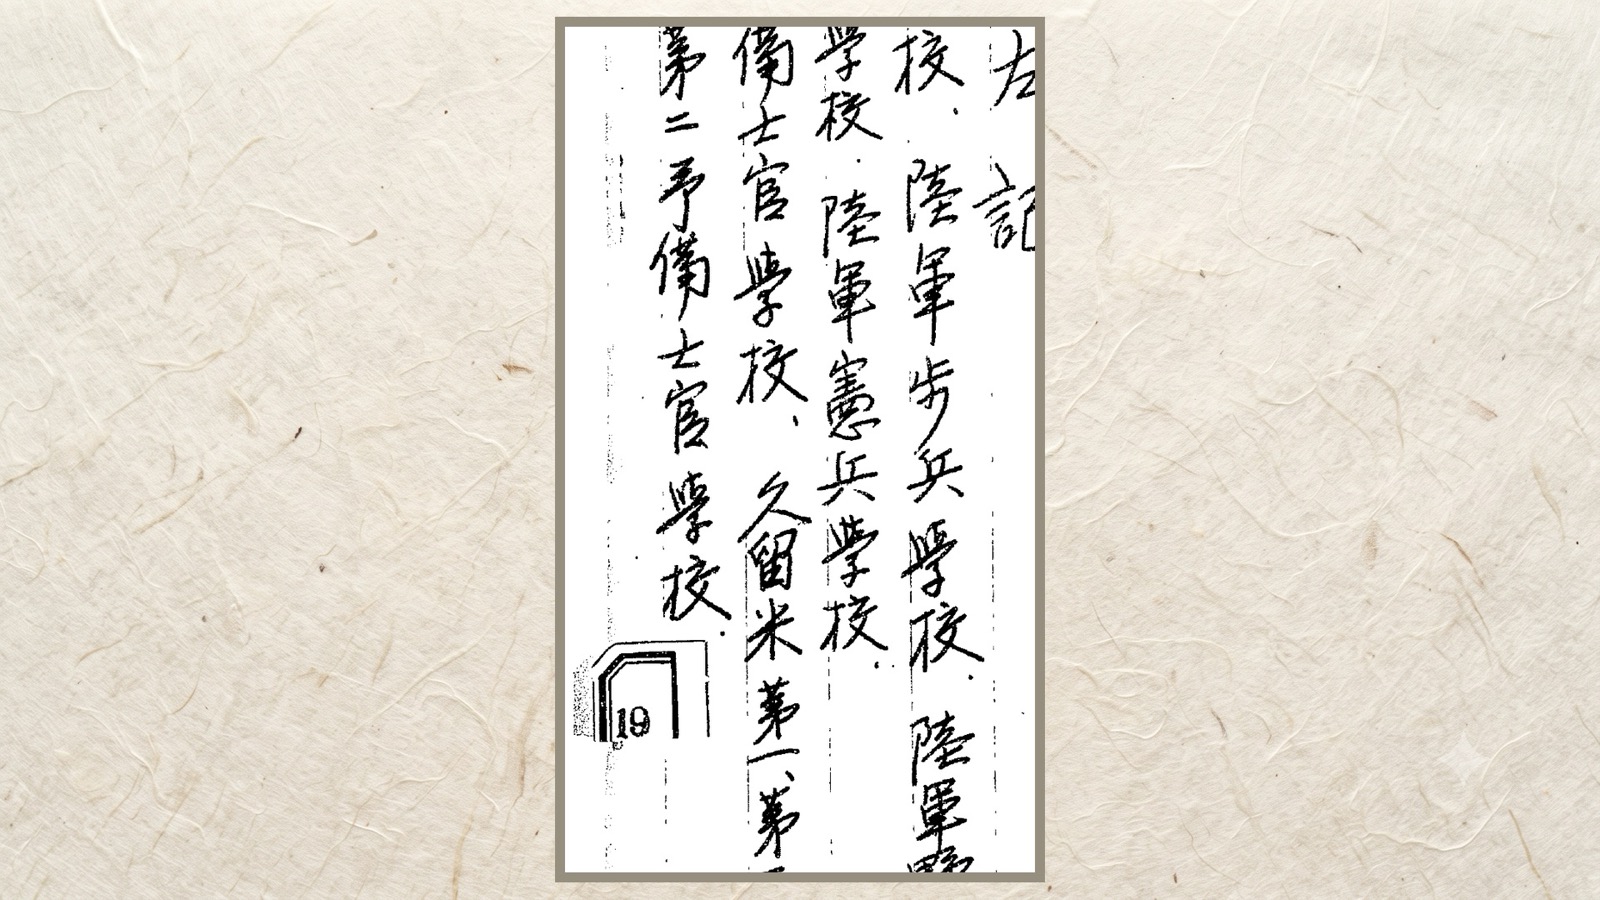 左記
校、陸軍歩兵學校、陸軍野
學校、陸軍憲兵學校、
備士官學校、久留米第一、第
第二予備士官學校、
19